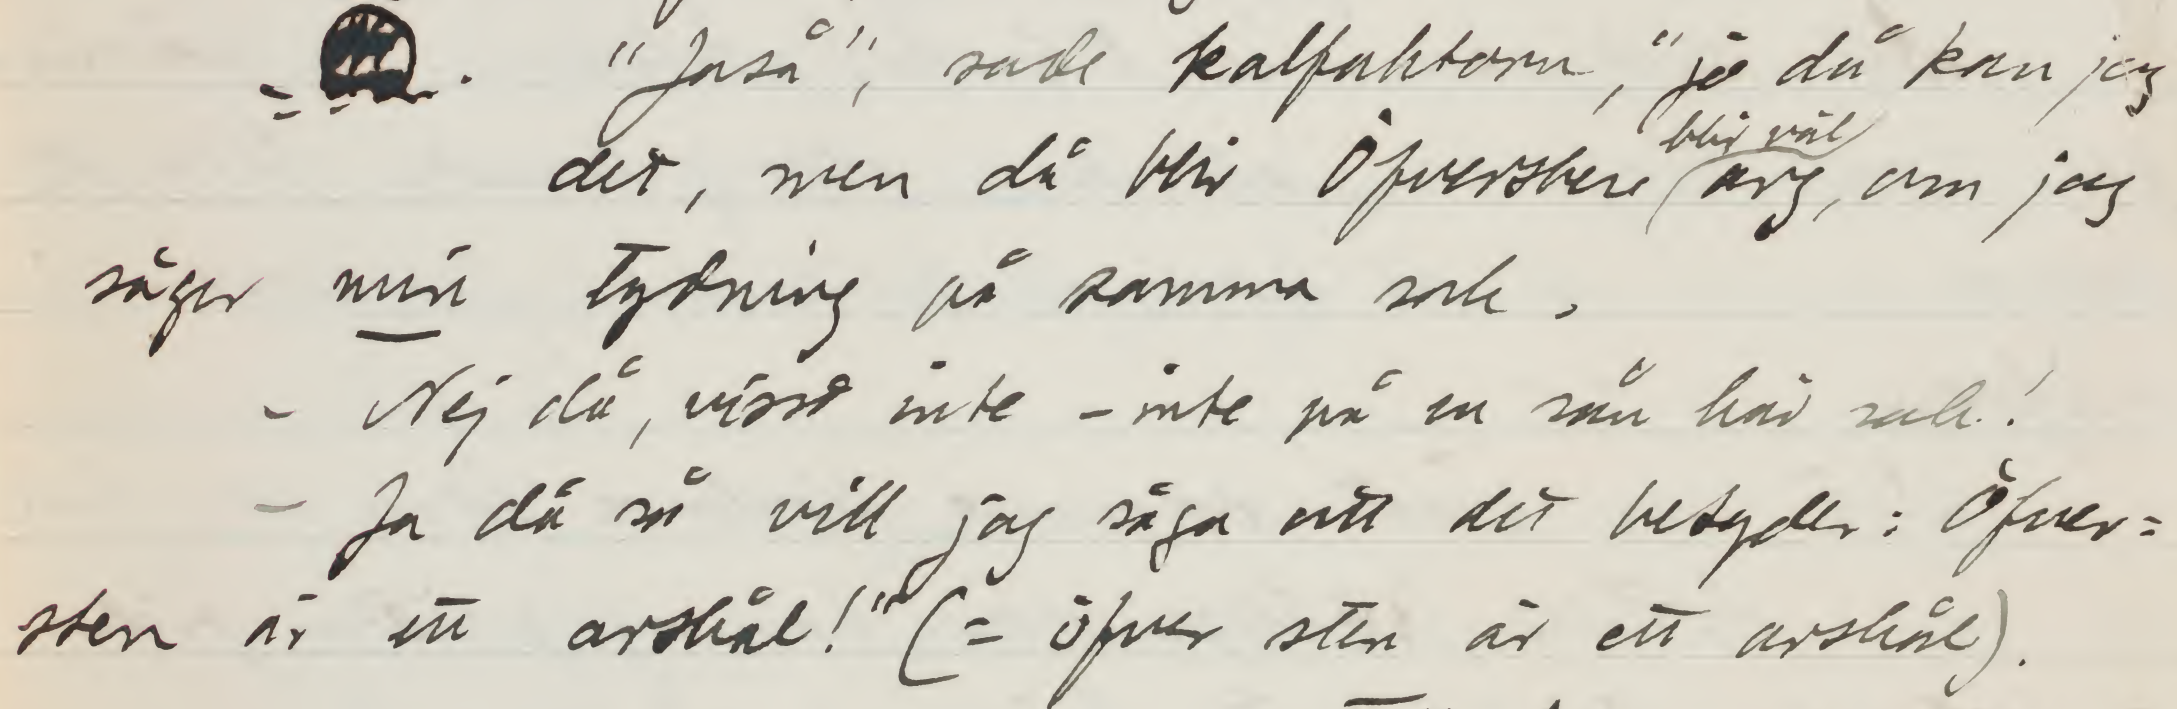 "Jaså", sade kalfaktorn, "jo då kan jag
det, men då blir Öfversten blir väl arg, om jag
säger min tydning på samma sak.
- Nej då, visst inte - inte på en sån här sak!
- Ja då så vill jag säga att det betyder: Öfver=
sten är ett arshål!" (= öfver sten är ett arshål).